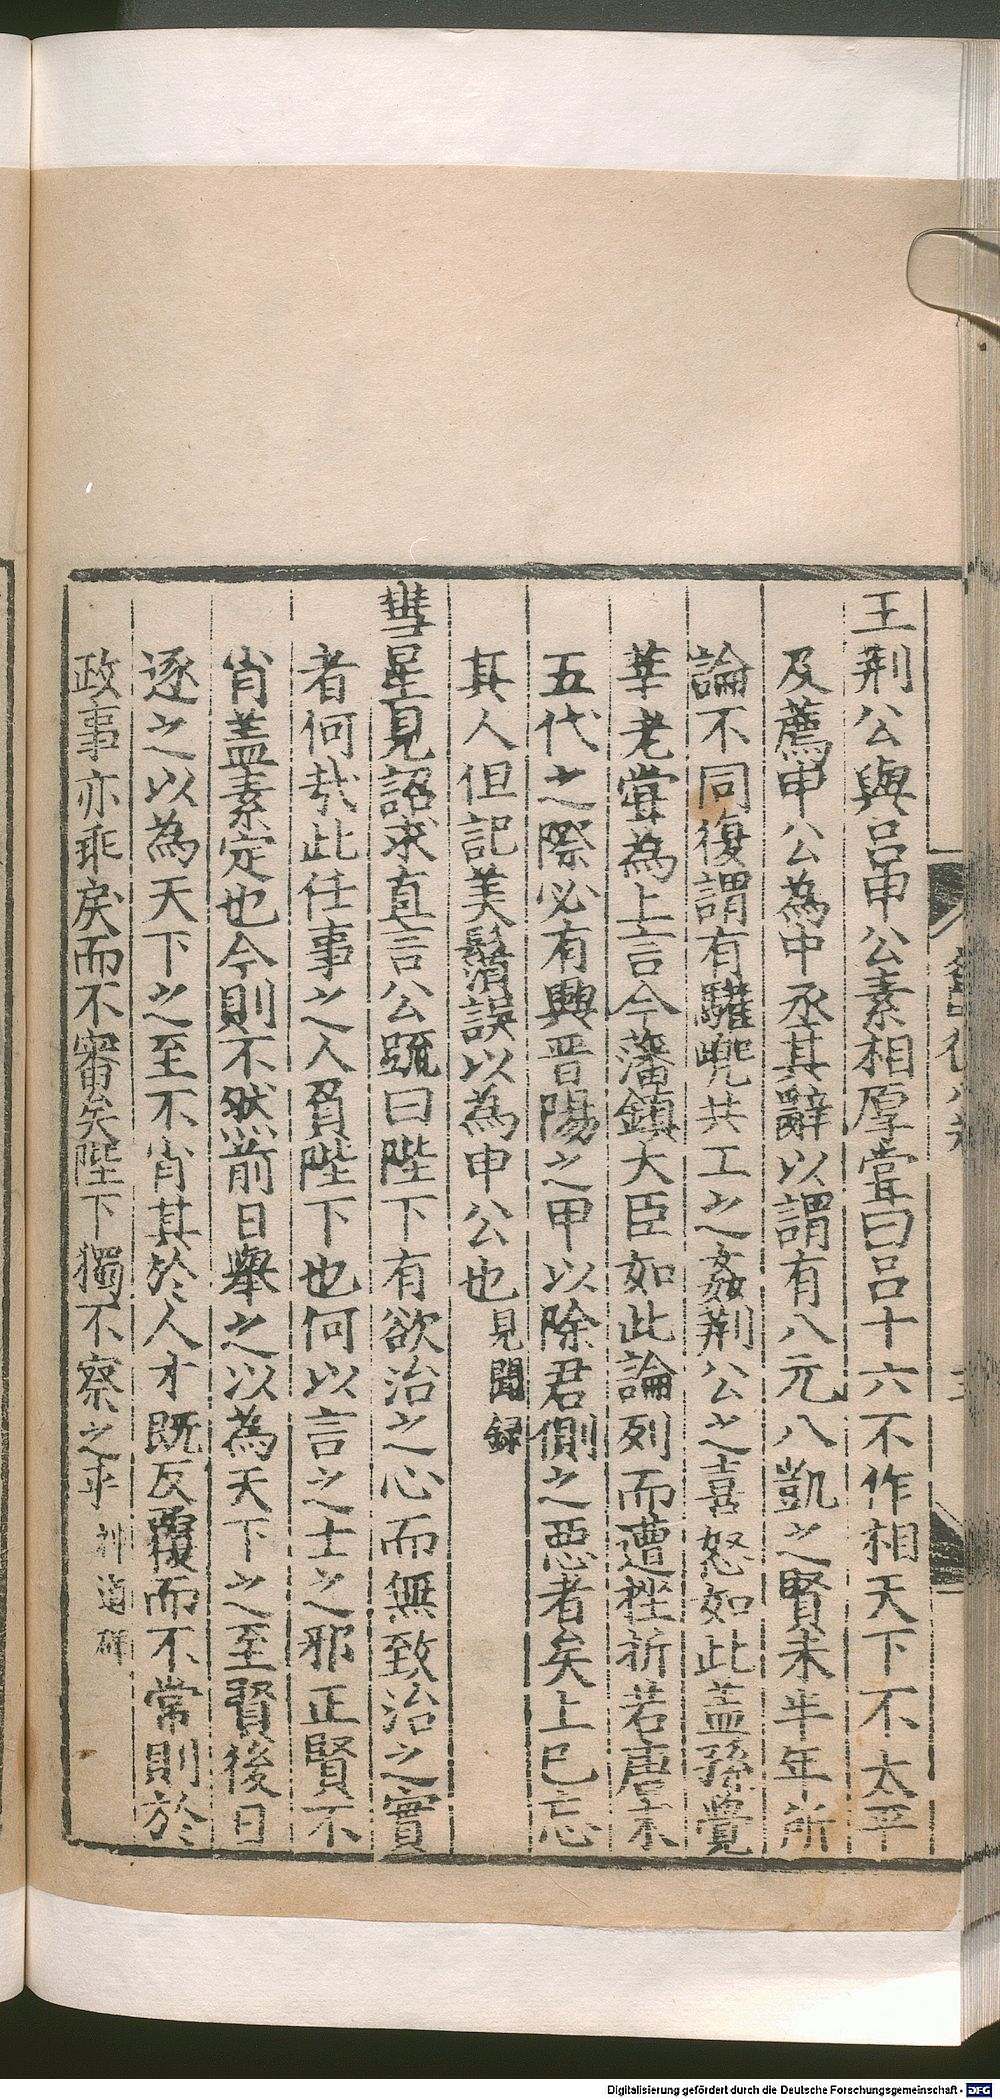 王荆公與吕申公素相厚甞曰吕十六不作相天下不太平
及薦申公為中丞其辭以謂有八元八凱之賢未半年所
論不同復謂有驩兜共工之姦荆公之喜怒如此盖孫覺
莘老甞為上言今藩鎮大臣如此論列而遭挫折若唐末
五代之際必有興晋陽之甲以除君側之惡者矣上已忘
其人但記美鬚誤以為申公也見聞録
彗星見詔求直言公䟽曰陛下有欲治之心而無致治之實
者何㢤此任事之人負陛下也何以言之士之邪正賢不
肖盖素定也今則不然前日舉之以為天下之至賢後日
逐之以為天下之至不肖其於人才既反覆而不常則於
政事亦乖戾而不審矣陛下獨不察之乎神道碑
Digitalisierung gefördert durch die Deutsche Forschungsgemeinschaft - DFG